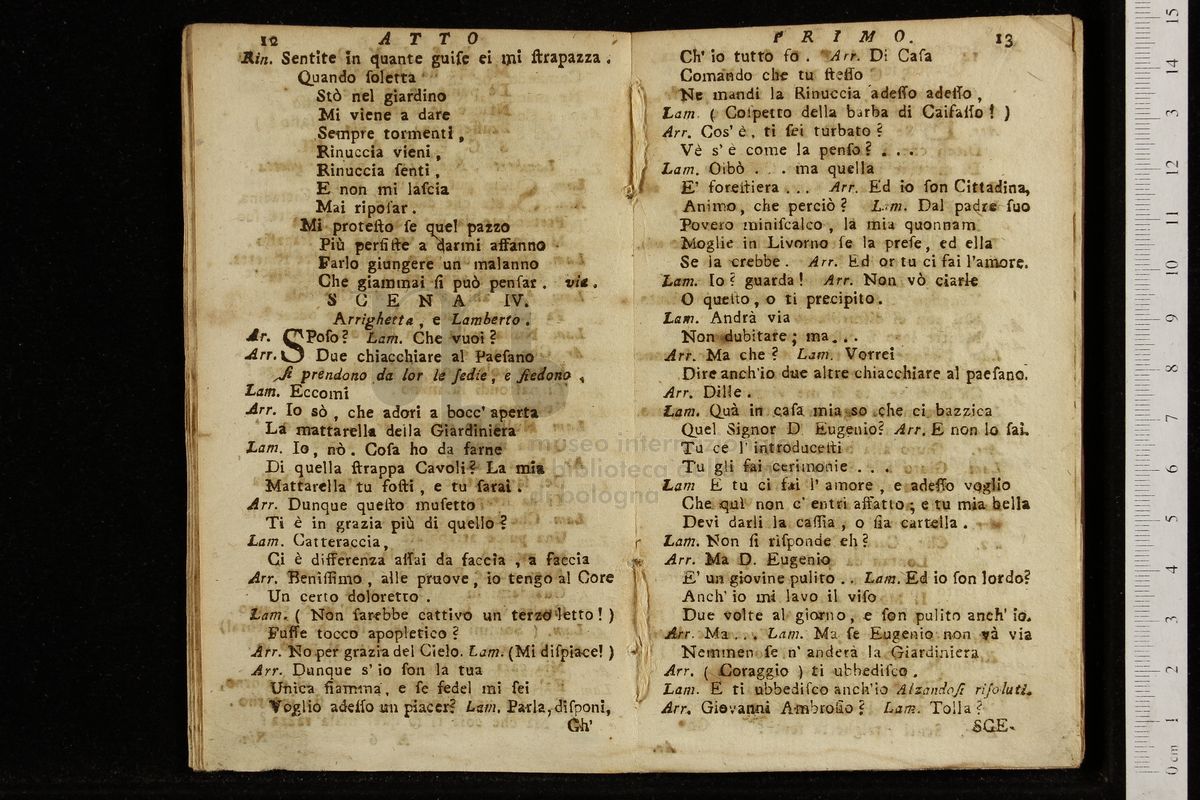 12 ATTO
Rin. Sentite in quante guiſe ei mi ſtrapazza.
Quando ſoletta
Stò nel giardino
Mi viene a dare
Sempre tormenti,
Rinuccia vieni,
Rinuccia ſenti,
E non mi laſcia
Mai ripoſar.
Mi proteſto ſe quel pazzo
Più perſiſte a darmi affanno
Farlo giungere un malanno
Che giammai ſi può penſar. via.
SCENA IV.
Arrighetta, e Lamberto.
Ar. SPoſo? Lam. Che vuoi?
Arr. Due chiacchiare al Paeſano
ſi prendono da lor le ſedie, e ſiedono,
Lam. Eccomi
Arr. Io sò, che adori a bocc' aperta
La mattarella della Giardiniera
Lam. Io, nò. Coſa ho da farne
Di quella ſtrappa Cavoli? La mia
Mattarella tu foſti, e tu ſarai.
Arr. Dunque queſto muſetto
Ti è in grazia più di quello?
Lam. Catteraccia,
Ci è differenza aſſai da faccia, a faccia
Arr. Beniſſimo, alle pruove, io tengo al Core
Un certo doloretto.
Lam. (Non ſarebbe cattivo un terzo letto!)
Fuſſe tocco apopletico?
Arr. No per grazia del Cielo. Lam. (Mi diſpiace!)
Arr. Dunque s' io ſon la tua
Unica fiamma, e ſe fedel mi ſei
Voglio adeſſo un piacer? Lam. Parla, diſponi,
Ch'
PRIMO. 13
Ch' io tutto fo. Arr. Di Caſa
Comando che tu ſteſſo
Ne mandi la Rinuccia adeſſo adeſſo,
Lam. (Coſpetto della barba di Caifaſſo!)
Arr. Cos' è, ti ſei turbato?
Vè s' è come la penſo? ...
Lam. Oibò ... ma quella
E' foreſtiera ... Arr. Ed io ſon Cittadina,
Animo, che perciò? Lam. Dal padre ſuo
Povero miniſcalco, la mia quonnam
Moglie in Livorno ſe la preſe, ed ella
Se la crebbe. Arr. Ed or tu ci fai l'amore.
Lam. Io? guarda! Arr. Non vò ciarle
O queſto, o ti precipito.
Lam. Andrà via
Non dubitare; ma...
Arr. Ma che? Lam. Vorrei
Dire anch'io due altre chiacchiare al paeſano.
Arr. Dille.
Lam. Quà in caſa mia so che ci bazzica
Quel Signor D. Eugenio? Arr. E non lo ſai.
Tu ce l' introduceſti
Tu gli fai cerimonie ....
Lam E tu ci fai l' amore, e adeſſo voglio
Che quì non c' entri affatto; e tu mia bella
Devi darli la caſſia, o ſia cartella.
Lam. Non ſi riſponde eh?
Arr. Ma D. Eugenio
E' un giovine pulito .. Lam. Ed io ſon lordo?
Anch' io mi lavo il viſo
Due volte al giorno, e ſon pulito anch' io.
Arr. Ma... Lam. Ma ſe Eugenio non và via
Nemmen ſe n' anderà la Giardiniera
Arr. (Coraggio) ti ubbediſco.
Lam. E ti ubbediſco anch'io Alzandoſi riſoluti.
Arr. Giovanni Ambroſio? Lam. Tolla?
SCE-